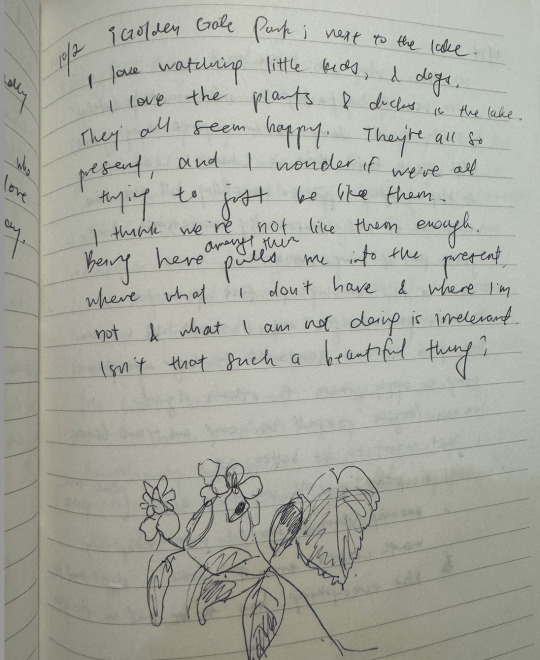 10/2 ¡Golden Gate Park; next to the lake.
I love watching little kids, & dogs.
I love the plants & ducks in the lake.
They all seem happy. They're all so
present, and I wonder if we're all
trying to just be like them.
I think we're not like them enough.
amongst them
Being here pulls me into the present,
where what I don't have & where I'm
not & what I am not doing is irrelevant.
Isn't that such a beautiful thing?
love